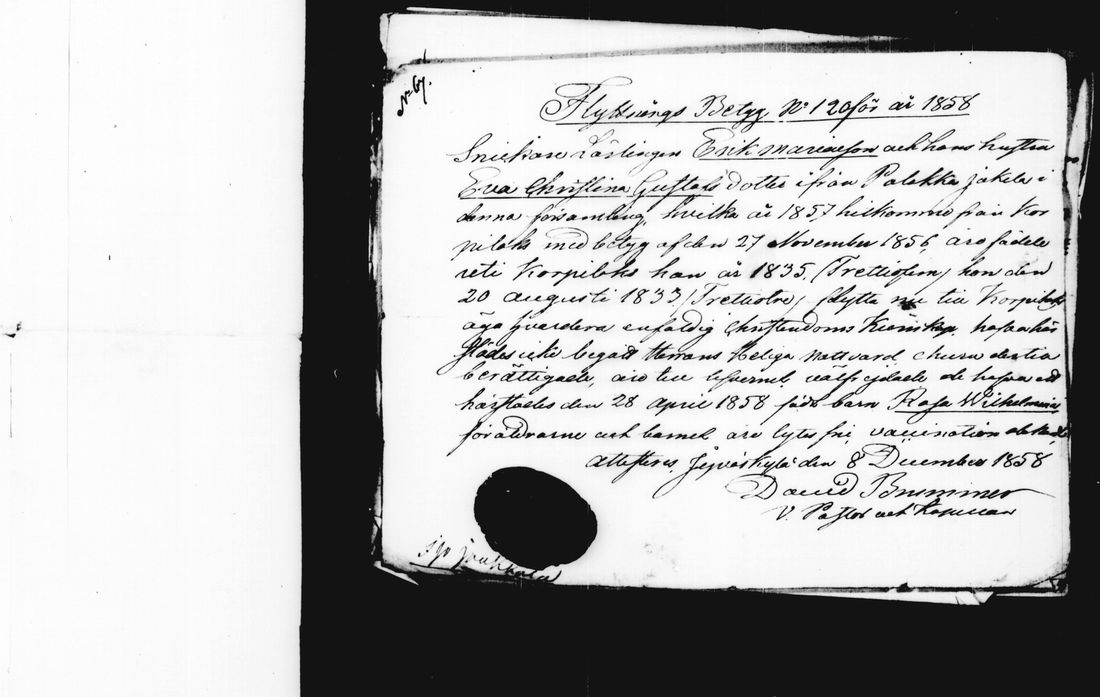 No 67.
Flyttnings Betyg No 120 för år 1858
Snickare Lärlingen Erik Mariaeson och hans hustru
Eva Christina Gustafs dotter ifrån Palokka Jakela i
denna församling, hvilka år 1857 hitkommo från Kor
pilaks med betyg af den 27 November 1856, äro födde
uti Korpilaks han år 1835 (Trettiofem) hon den
20 augusti 1833 (Trettiotre) flytta nu till Korpilaks
äga hvardera enfaldig Christendoms Kunskap, hafva här
städes icke begått Herrans Heliga Nattvard ehuru dertill
berättigade, äro till lefvernet välfrejdade de hafva ett
härstädes den 28 april 1858 födt barn Rosa Wilhelmina
föräldrarne och barnet äro lytes fri, vaccination
attesteras Jyväskylä den 8 December 1858
David Brummer
V. Pastor och Kapellan